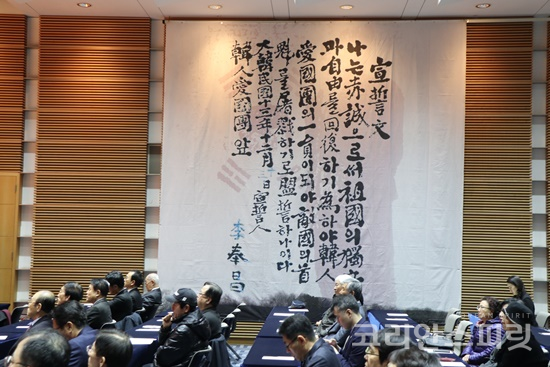 宣誓文
나는赤誠으로써祖國의獨
과自由를回復하기爲하야韓人
愛國團의一員이되야敵國의首
魁를屠戮하기로盟誓하나이다
大韓民國十三年十二月 日 宣誓人
李奉昌
韓人愛國團앞
코리안스피릿